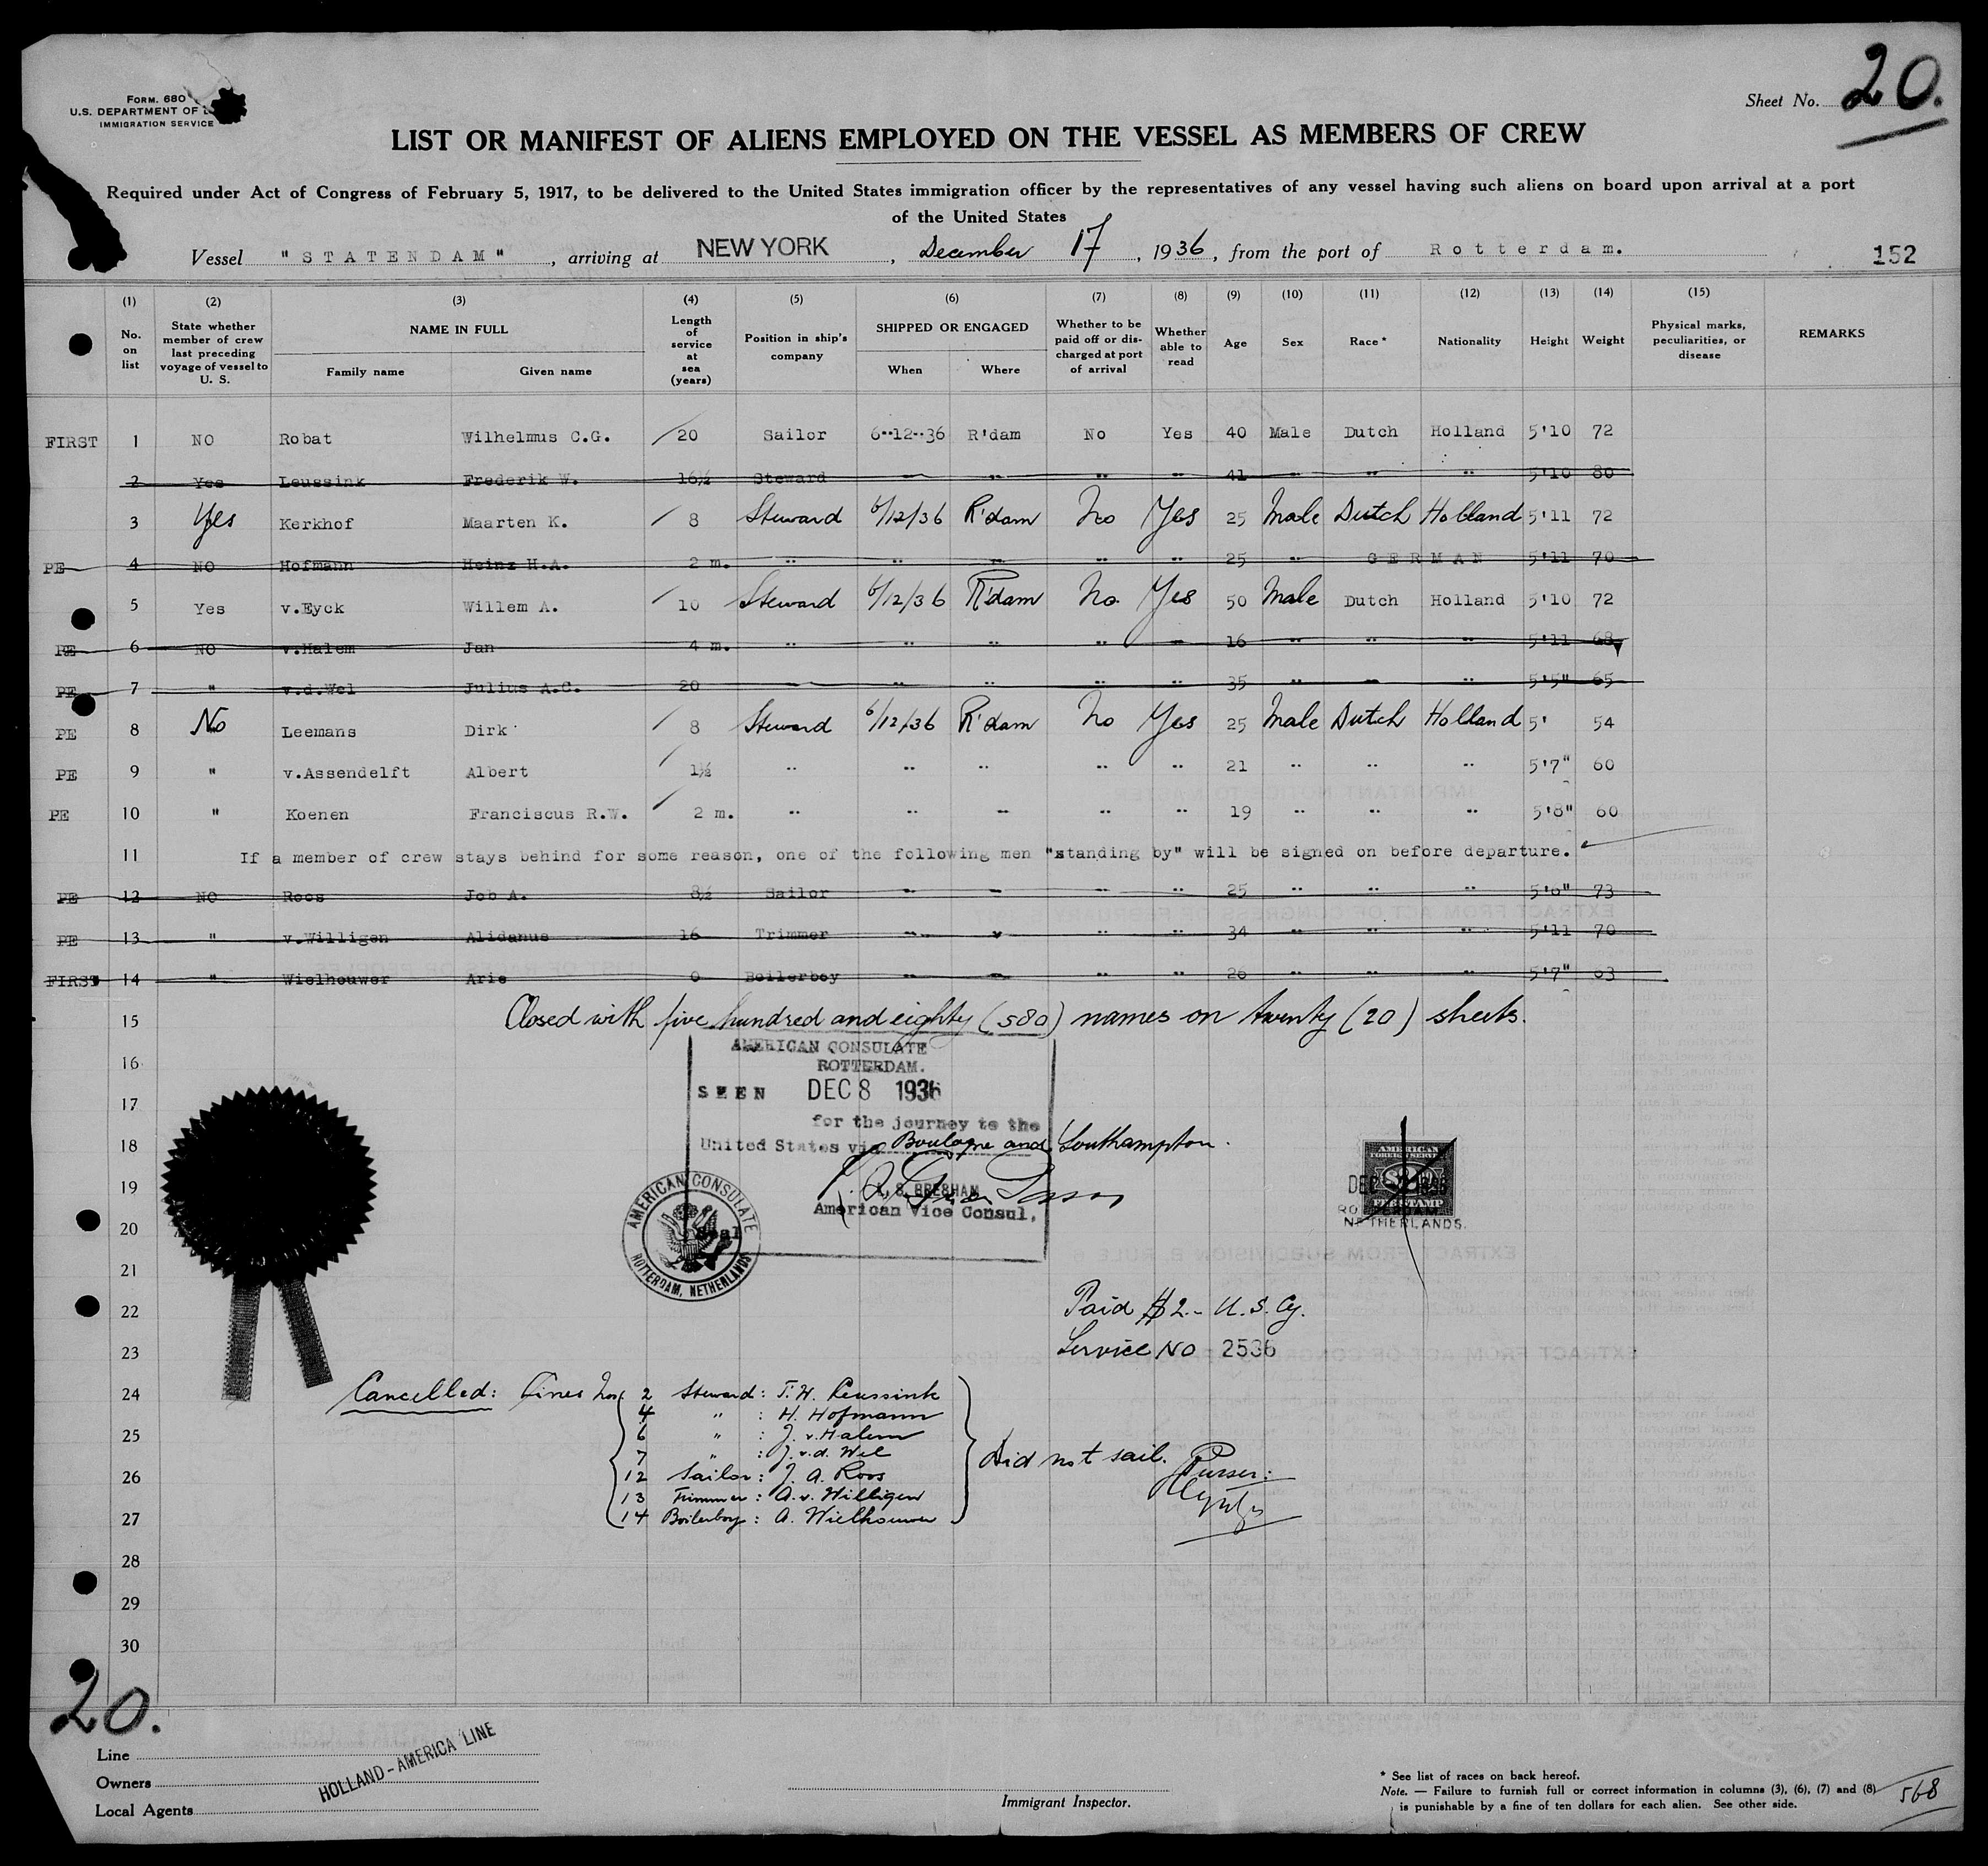 FORM. 680
U.S. DEPARTMENT OF
IMMIGRATION SERVICE
Sheet No. 20.
LIST OR MANIFEST OF ALIENS EMPLOYED ON THE VESSEL AS MEMBERS OF CREW
Required under Act of Congress of February 5, 1917, to be delivered to the United States immigration officer by the representatives of any vessel having such aliens on board upon arrival at a port
of the United States
Vessel "STATENDAM", arriving at NEW YORK, December 17, 1936, from the port of Rotterdam.
152
(1) (2) (3) (4) (5) (6) (7) (8) (9) (10) (11) (12) (13) (14) (15)
No. on list
State whether member of crew last preceding voyage of vessel to U. S.
NAME IN FULL
Family name Given name
Length of service at sea (years)
Position in ship's company
SHIPPED OR ENGAGED
When Where
Whether to be paid off or discharged at port of arrival
Whether able to read
Age Sex Race * Nationality Height Weight
Physical marks, peculiarities, or disease
REMARKS
FIRST 1 NO Robat Wilhelmus C.G. 20 Sailor 6-12-36 R'dam No Yes 40 Male Dutch Holland 5'10 72
2 Yes Leussink Frederik W. 16½ Steward " " " " 41 " " " 5'10 80
3 Yes Kerkhof Maarten K. 8 Steward 6/12/36 R'dam No Yes 25 Male Dutch Holland 5'11 72
PE 4 NO Hofmann Heinz H.A. 2 m. " " " " " 25 " GERMAN 5'11 70
5 Yes v.Eyck Willem A. 10 Steward 6/12/36 R'dam No Yes 50 Male Dutch Holland 5'10 72
PE 6 NO v.Halem Jan 4 m. " " " " " 16 " " " 5'11 68
PE 7 " v.d.Wel Julius A.C. 20 " " " " " 35 " " " 5'5" 65
PE 8 No Leemans Dirk 8 Steward 6/12/36 R'dam No Yes 25 Male Dutch Holland 5' 54
PE 9 " v.Assendelft Albert 1½ " " " " " 21 " " " 5'7" 60
PE 10 " Koenen Franciscus R.W. 2 m. " " " " " 19 " " " 5'8" 60
11 If a member of crew stays behind for some reason, one of the following men "standing by" will be signed on before departure.
PE 12 NO Roos Job A. 8½ Sailor " " " " 25 " " " 5'6" 73
PE 13 " v.Willigen Alidanus 16 Trimmer " " " " 34 " " " 5'11 70
FIRST 14 " Wielhouwer Arie 0 Boilerboy " " " " 26 " " " 5'7" 63
15 Closed with five hundred and eighty (580) names on twenty (20) sheets.
AMERICAN CONSULATE
16 ROTTERDAM.
SEEN DEC 8 1936
17
for the journey to the
18 United States via Boulogne and Southampton.
AMERICAN FOREIGN SERVICE
$2
FEE STAMP
DEC - 8 1936
ROTTERDAM
NETHERLANDS.
19
American Vice Consul,
AMERICAN CONSULATE
Seal
ROTTERDAM, NETHERLANDS
20
21
22 Paid $2.- U.S. Cy.
23 Service No 2536
24 Cancelled: Lines Nos 2 Steward: F. W. Leussink
4 " : H. Hofmann
25 6 " : J. v. Halem
7 " : J. v. d. Wel
Did not sail.
26 12 Sailor: J. A. Roos
Purser:
13 Trimmer: A. v. Willigen
27 14 Boilerboy: A. Wielhouwer
28
29
30
20.
Line
Owners
Local Agents
HOLLAND-AMERICA LINE
Immigrant Inspector.
* See list of races on back hereof.
Note. — Failure to furnish full or correct information in columns (3), (6), (7) and (8)
is punishable by a fine of ten dollars for each alien. See other side.
568